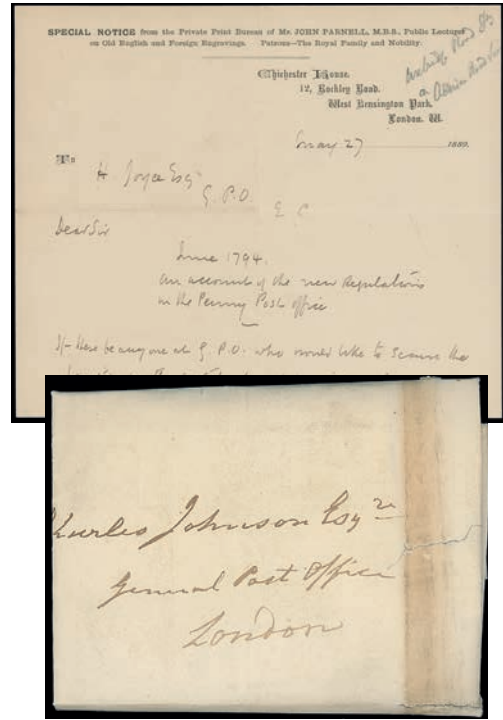 SPECIAL NOTICE from the Private Print Bureau of Mr. JOHN PARNELL, M.B.S., Public Lectures
on Old English and Foreign Engravings. Patrons—The Royal Family and Nobility.
Uxbridge Road Stn
Road
Chichester House,
12, Rockley Road,
West Kensington Park,
London, W.
May 27 1889.
To
H Joyce Esq
G. P. O.
E C
Dear Sir
June 1794.
An account of the new Regulations
in the Penny Post Office
If there be anyone at G. P. O. who would like to secure the
Charles Johnson Esqre
General Post Office
London